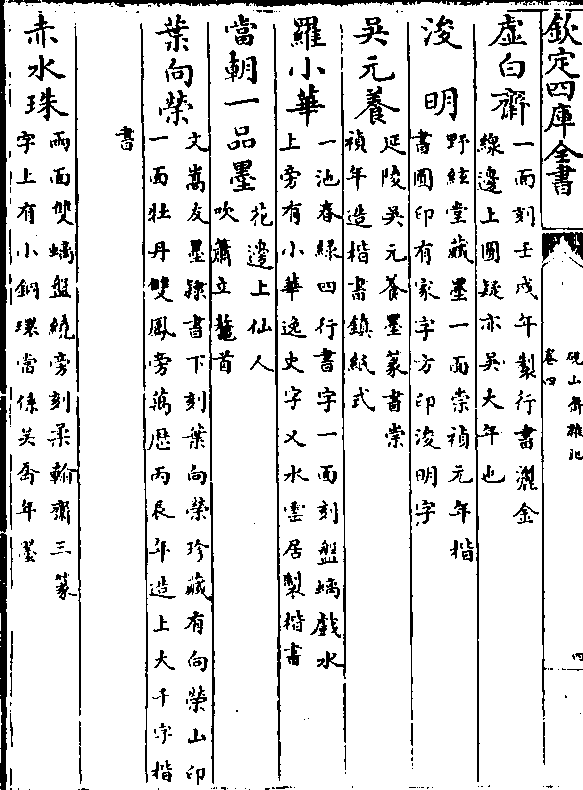 欽定四庫全書
硯山齋雜記
卷四
四
虛白齋
一面刻壬戌年製行書灑金
線邊上圓疑亦吳大年也
浚明
野絃堂藏墨一面崇禎元年楷
書圓印有家字方印浚明字
吳元養
延陵吳元養墨篆書崇
禎年造楷書鎮紙式
羅小華
一池春綠四行書字一面刻盤螭戲水
上旁有小華逸史字又水雲居製楷書
當朝一品墨
花邊上仙人
吹簫立鼇首
葉向榮
文嵩友墨隸書下刻葉向榮珍藏有向榮山印
一面牡丹雙鳳旁萬歷丙辰年造上大千字楷
書
赤水珠
兩面雙螭盤繞旁刻柔翰齋三篆
字上有小銅環當係吳喬年墨